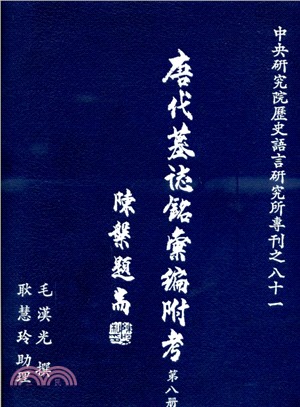 中央研究院歷史語言研究所專刊之八十一
唐代墓誌銘彙編附考
第八册
陳槃題耑
毛漢光撰
耿慧玲助理
三民